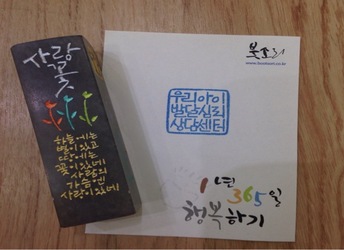 사랑
꽃
하늘에는
별이 있고
땅에는
꽃이 있네
사람의
가슴엔
사랑이 있네
붓소리
우리아이
발달심리
상담센터
1년 365일
행복하기